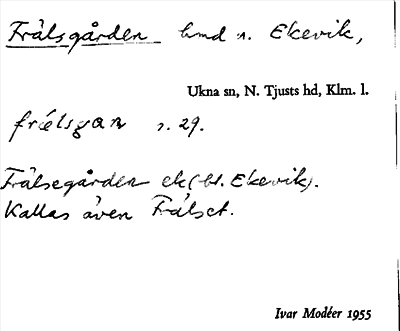 Frälsgården hmd n. Ekevik,
Ukna sn, N. Tjusts hd, Klm. l.
frélsgan s. 29.
Frälsegården ek (bl. Ekevik).
Kallas även Frälset.
Ivar Modéer 1955